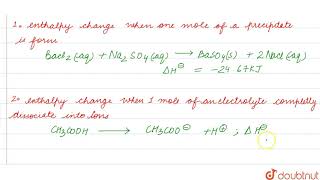 1. enthalpy change when one mole of a precipitate
is form
BaCl2(aq) + Na2SO4(aq) → BaSO4(s) + 2NaCl(aq)
ΔH⊖ = -24.67KJ
2. enthalpy change when 1 mole of an electrolyte completly
dissociate into Ions
CH3COOH → CH3COO⊖ + H⊕ ; ΔH⊖
doubtnut